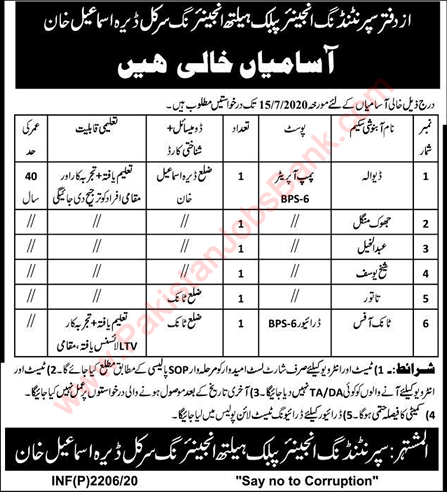 از دفتر سپرنٹنڈنگ انجینئر پبلک ہیلتھ انجینئرنگ سرکل ڈیرہ اسماعیل خان
آسامیاں خالی ہیں
درج ذیل خالی آسامیاں کے لئے مورخہ 15/7/2020 تک درخواستیں مطلوب ہیں۔
نمبر شمار | نام آبنوشی سکیم | پوسٹ | تعداد | ڈومیسائل + شناختی کارڈ | تعلیمی قابلیت | عمر کی حد
1 | ڈیوالہ | پمپ آپریٹر BPS-6 | 1 | ضلع ڈیرہ اسماعیل خان | تعلیم یافتہ + تجربہ کار اور مقامی افراد کو ترجیح دی جائیگی | 40 سال
2 | جھوک منگل | // | 1 | // | // | //
3 | عبدالخیل | // | 1 | // | // | //
4 | شیخ یوسف | // | 1 | // | // | //
5 | تاتور | // | 1 | ضلع ٹانک | // | //
6 | ٹانک آفس | ڈرائیور BPS-6 | 1 | ضلع ٹانک | تعلیم یافتہ + تجربہ کار LTV لائسنس یافتہ، مقامی | //
شرائط:۔ 1) ٹیسٹ اور انٹرویو کیلئے صرف شارٹ لسٹ امیدوار کو مرحلہ وار SOP پالیسی کے مطابق مطلع کیا جائے گا۔ 2) ٹیسٹ اور
انٹرویو کیلئے آنے والوں کو کوئی TA/DA نہیں دیا جائیگا۔ 3) آخری تاریخ کے بعد موصول ہونے والی درخواستوں پر عمل نہیں کیا جائیگا۔
4) کمیٹی کا فیصلہ حتمی ہوگا۔ 5) ڈرائیور کیلئے ڈرائیونگ ٹیسٹ لائن پولیس میں لیا جائیگا۔
المشتہر: سپرنٹنڈنگ انجینئر پبلک ہیلتھ انجینئرنگ سرکل ڈیرہ اسماعیل خان
INF(P)2206/20 "Say no to Corruption"
PakistanJobsBank.com